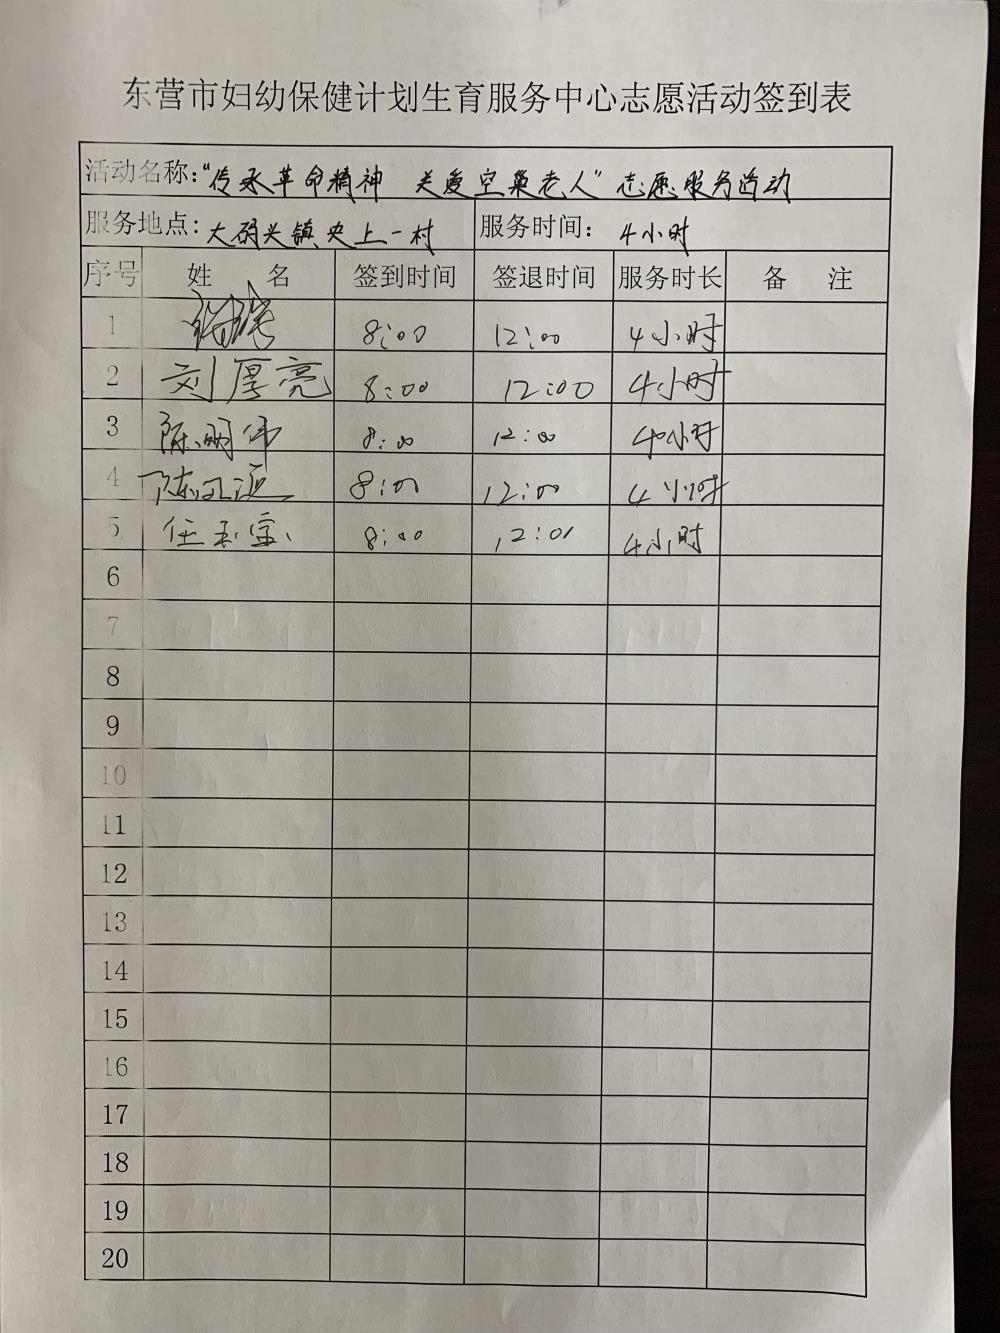 东营市妇幼保健计划生育服务中心志愿活动签到表
活动名称：“传承革命精神 关爱空巢老人”志愿服务活动
服务地点：大码头镇央上一村 服务时间：4小时
序号 姓 名 签到时间 签退时间 服务时长 备 注
1 8:00 12:00 4小时
2 刘厚亮 8:00 12:00 4小时
3 陈明伟 8:00 12:00 4小时
4 陈 8:00 12:00 4小时
5 任玉宝 8:00 12:00 4小时
6
7
8
9
10
11
12
13
14
15
16
17
18
19
20